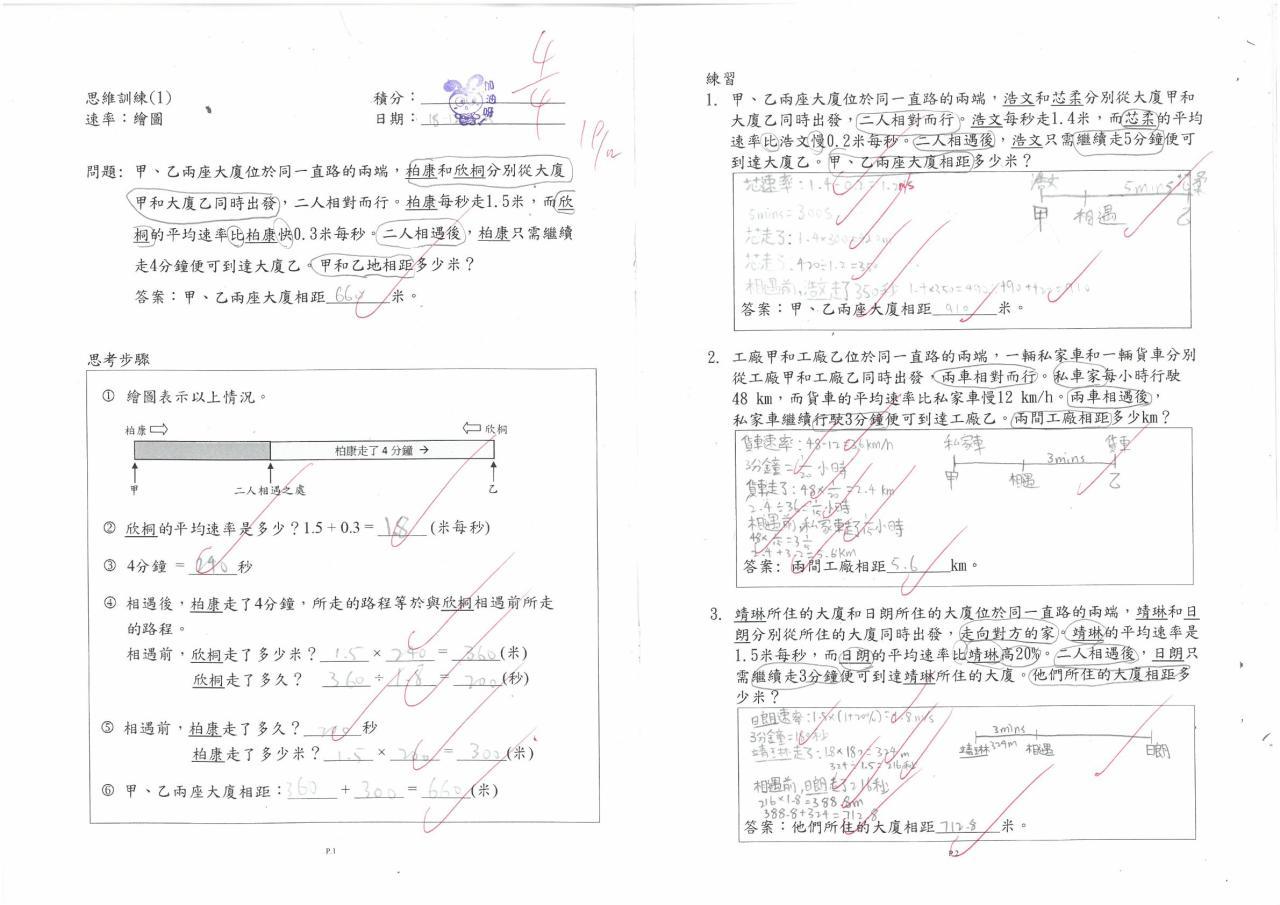 思維訓練(1)
積分：
4/4
速率：繪圖
日期：
問題: 甲、乙兩座大廈位於同一直路的兩端，柏康和欣桐分別從大廈
甲和大廈乙同時出發，二人相對而行。柏康每秒走1.5米，而欣
桐的平均速率比柏康快0.3米每秒。二人相遇後，柏康只需繼續
走4分鐘便可到達大廈乙。甲和乙地相距多少米？
答案：甲、乙兩座大廈相距 660 米。
思考步驟
① 繪圖表示以上情況。
柏康
欣桐
柏康走了 4 分鐘 →
甲
二人相遇之處
乙
② 欣桐的平均速率是多少？1.5 + 0.3 = 1.8 (米每秒)
③ 4分鐘 = 240 秒
④ 相遇後，柏康走了4分鐘，所走的路程等於與欣桐相遇前所走
的路程。
相遇前，欣桐走了多少米？ 1.5 × 240 = 360 (米)
欣桐走了多久？ 360 ÷ 1.8 = 200 (秒)
⑤ 相遇前，柏康走了多久？ 200 秒
柏康走了多少米？ 1.5 × 200 = 300 (米)
⑥ 甲、乙兩座大廈相距：360 + 300 = 660 (米)
P.1
練習
1. 甲、乙兩座大廈位於同一直路的兩端，浩文和芯柔分別從大廈甲和
大廈乙同時出發，二人相對而行。浩文每秒走1.4米，而芯柔的平均
速率比浩文慢0.2米每秒。二人相遇後，浩文只需繼續走5分鐘便可
到達大廈乙。甲、乙兩座大廈相距多少米？
芯速率：1.4-0.2=1.2m/s
浩文
5mins
芯柔
甲
相遇
乙
5mins=300s
芯走了：1.4×300=420m
420÷1.2=350
相遇前，浩文走了350秒 1.4×350=490 490+420=910
答案：甲、乙兩座大廈相距 910 米。
2. 工廠甲和工廠乙位於同一直路的兩端，一輛私家車和一輛貨車分別
從工廠甲和工廠乙同時出發，兩車相對而行。私車家每小時行駛
48 km，而貨車的平均速率比私家車慢12 km/h。兩車相遇後，
私家車繼續行駛3分鐘便可到達工廠乙。兩間工廠相距多少km？
貨車速率：48-12=36km/h
私家車
3mins
貨車
甲
相遇
乙
3分鐘=1/20小時
貨車走了：48×1/20=2.4 km
2.4÷36=1/15小時
相遇前，私家車走了1/15小時
48×1/15=3 1/5
2.4+3.2=5.6km
答案: 兩間工廠相距 5.6 km。
3. 靖琳所住的大廈和日朗所住的大廈位於同一直路的兩端，靖琳和日
朗分別從所住的大廈同時出發，走向對方的家。靖琳的平均速率是
1.5米每秒，而日朗的平均速率比靖琳高20%。二人相遇後，日朗只
需繼續走3分鐘便可到達靖琳所住的大廈。他們所住的大廈相距多
少米？
日朗速率：1.5×(1+20%)=1.8m/s
3mins
324m
靖琳
相遇
日朗
3分鐘=180秒
靖琳走了：1.8×180=324m
324÷1.5=216秒
相遇前，日朗走了216秒
216×1.8=388.8m
388.8+324=712.8
答案：他們所住的大廈相距 712.8 米。
P.2